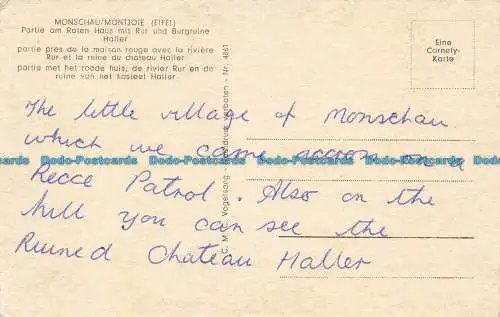 MONSCHAU/MONTJOIE (EIFEL)
Partie am Roten Haus mit Rur und Burgruine
Haller
partie prés de la maison rouge avec le rivière
Rur et la reine du chateau Haller
partie met het roode huis, de rivier Rur en de
ruine van het kasteel Haller
Eine
Cornely-
Karte
C. M. C. Vogelsang - Nachdruck verboten - Nr. 4861
The little village of Monschau
which we came across on a
Recce Patrol. Also on the
hill you can see the
Ruined Chateau Haller
Dodo-Postcards Dodo-Postcards Dodo-Postcards Dodo-Postcards Dodo-Postcards